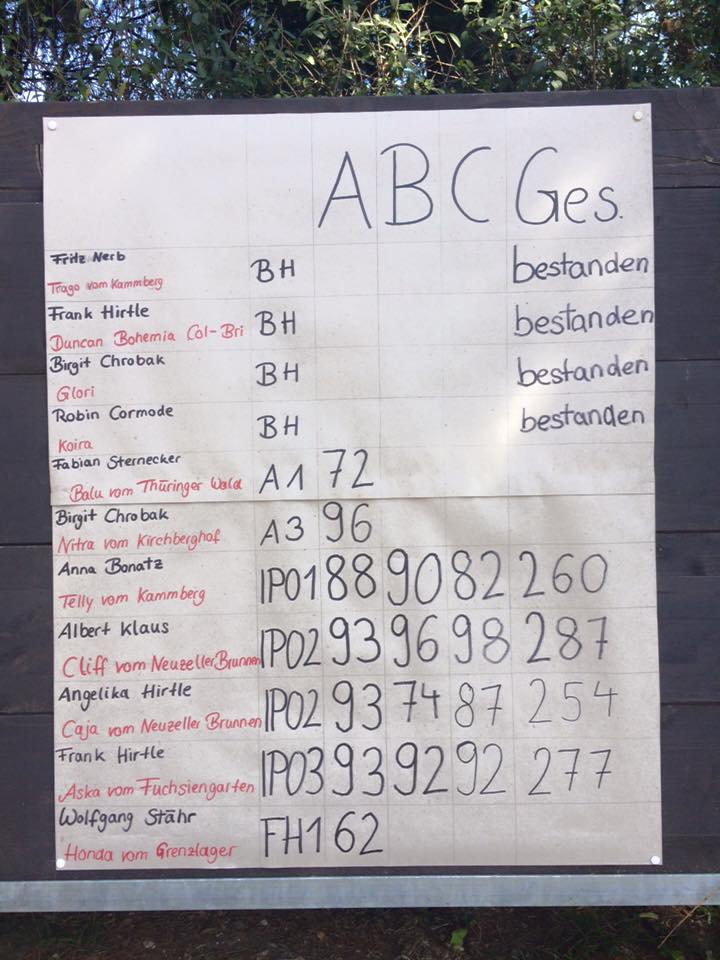 A B C Ges.
Fritz Nerb BH bestanden
Trago vom Kammberg
Frank Hirtle BH bestanden
Duncan Bohemia Col-Bri
Birgit Chrobak BH bestanden
Glori
Robin Cormode BH bestanden
Koira
Fabian Sternecker A1 72
Balu vom Thüringer Wald
Birgit Chrobak A3 96
Nitra vom Kirchberghof
Anna Bonatz IPO1 88 90 82 260
Telly vom Kammberg
Albert Klaus IPO2 93 96 98 287
Cliff vom Neuzeller Brunnen
Angelika Hirtle IPO2 93 74 87 254
Caja vom Neuzeller Brunnen
Frank Hirtle IPO3 93 92 92 277
Aska vom Fuchsiengarten
Wolfgang Stähr FH1 62
Honda vom Grenzlager